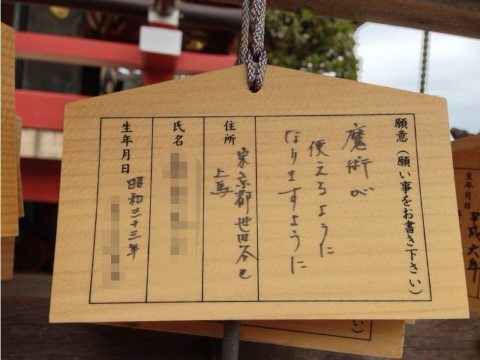 願意（願い事をお書き下さい）
魔術が
使えるように
なりますように
住所
東京都世田谷区
上馬
氏名
生年月日
昭和三十三年
生年月日
平成六年
い）